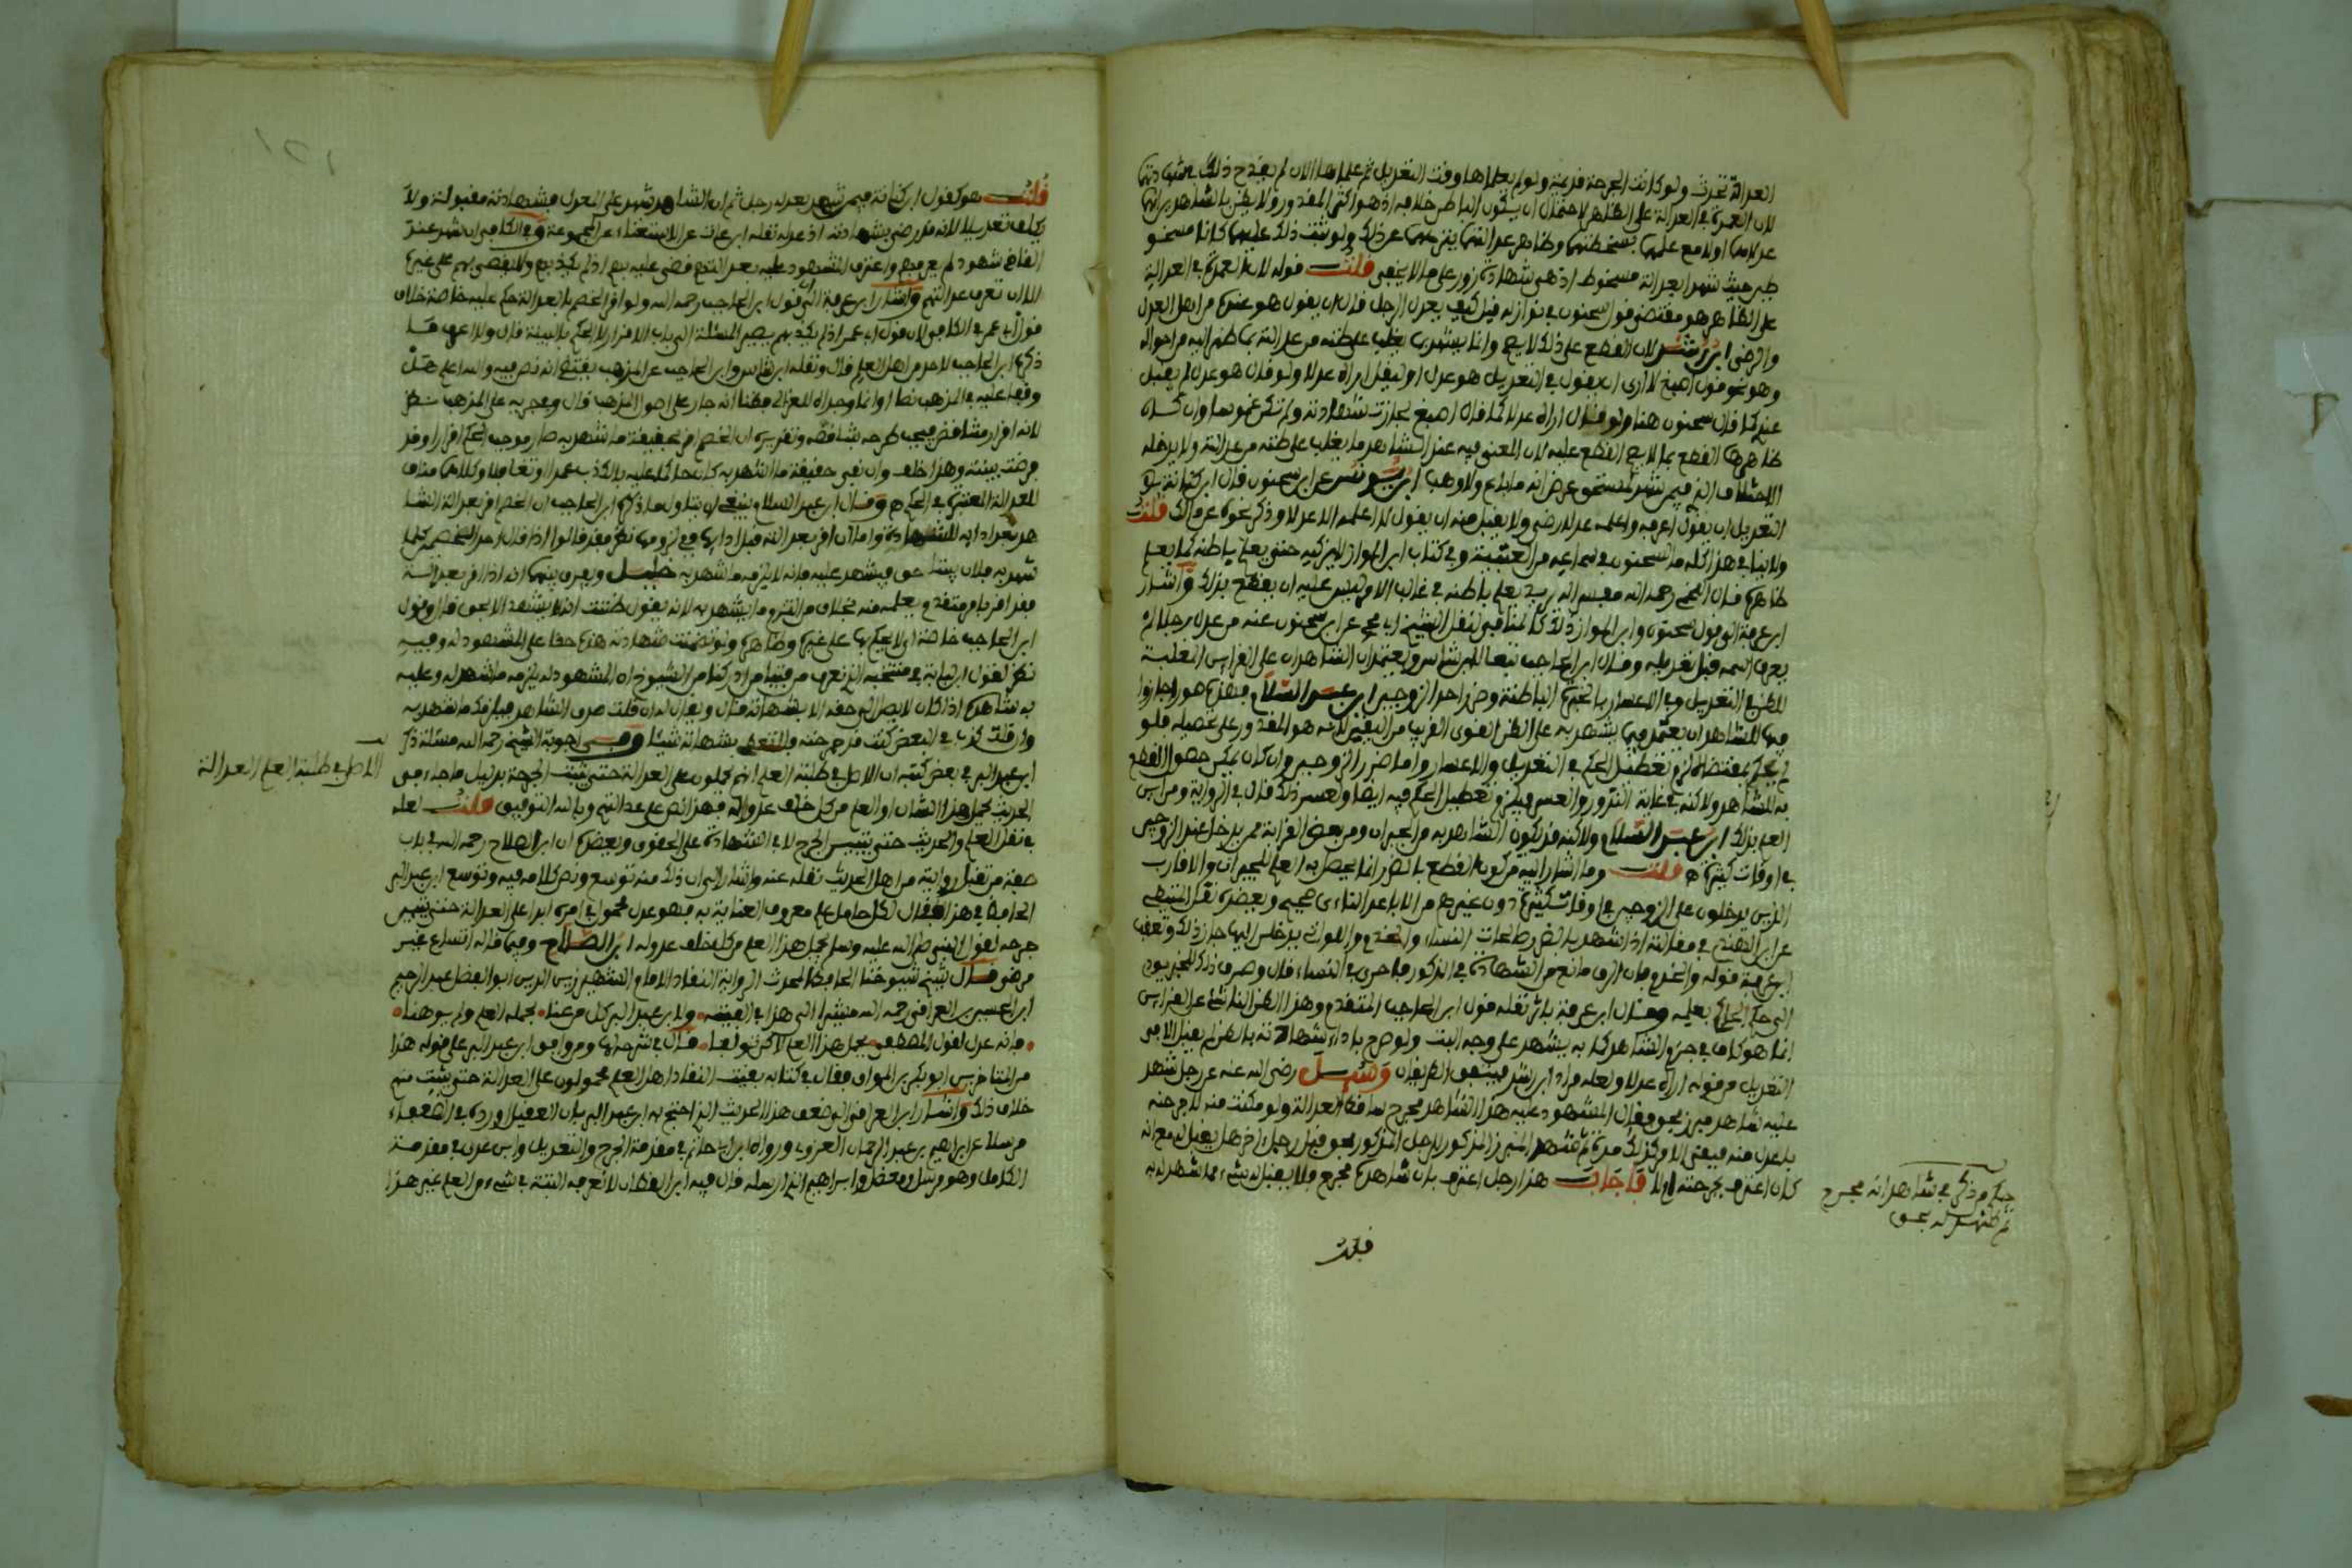 العدالة تحدث ولو كانت الجرحة قديمة ولو لم يعلماها وقت التعديل ثم علماها الان لم يقدح ذلك في شهادتهما
لان العمدة في العدالة على الظاهر لاحتمال ان يكون الباطن خلافه اذ هو اكثر المقدور ولا يظن بالشاهد
عدلا
طين حيث شهدا بعدالة مسخوط اذ هي شهادة زور على ما لا يخفى قلت قوله لان العمدة في العدالة
على الظاهر هو مقتضى قول سحنون في نوازله قيل كيف يعدل الرجل قال ان يقول هو عندي من اهل العدل
والرضى ابن رشد لان القطع على ذلك لا يصح وانما يشهد بما يغلب على ظنه من عدالته بما ظهر اليه من احواله
وهو نحو قول اصبغ لا ارى ان يقول في التعديل هو عدل او ليقل اراه عدلا ولو قال هو عدل لم يقبل
عندي كما قال سحنون هنا ولو قال اراه عدلا كما قال اصبغ لجازت شهادته ولم تكن غموسا وان كان
ظاهرها القطع بما لا يصح القطع عليه لان المعنى فيه عند الشاهد ما يغلب على ظنه من عدالته ولا يدخله
الاختلاف ابن يونس عن ابن سحنون قال ابن كنانة
التعديل ان يقول اعرفه واعلمه عدلا رضى ولا يقبل منه ان يقول لا اعلمه الا عدلا وذكر نحوه عن مالك قلت
ولا ينافي هذا كله ما لسحنون في سماعه من العتبية وفي كتاب ابن المواز لا يزكيه حتى يعلم باطنه كما يعلم
ظاهره قال اللخمي رحمه الله يريد يعلم باطنه في غالب الامر ليس عليه ان يقطع بذلك واشار
ابن عرفة الى قول سحنون وابن المواز ذلك كالمنافي لنقل الشيخ ابي محمد عن ابن سحنون عنه من عدل رجلا لم
يعرف اسمه قبل تعديله وقال ابن الحاجب تبعا لابن شاس ويعتمدان الشاهدان على القرائن المغلبة
للظن في التعديل وفي الاعسار بالخبرة الباطنة وضرر احد الزوجين ابن عبد السلام
فيها للشاهد ان يعتمد فيما يشهد به على الظن القوي القريب من اليقين لانه هو المقدور على تحصيله فلو
لم يحكم بمقتضاه لزم تعطيل الحكم في التعديل والاعسار واما ضرر الزوجين وان كان يمكن حصول القطع
به للشاهد ولاكنه في غاية الندور والعسر فيلزم تعطيل الحكم فيه ايضا ولعسر ذلك قال في الرواية ومن اين
العلم بذلك ابن عبد السلام ولاكنه قد يكون الشاهد به من الجيران ومن بعض القرابة ممن يدخل عند الزوجين
في اوقات كثيرة قلت وما اشار اليه من كون القطع بالضرر انما يحصل به العلم للجيران والاقارب
الذين يدخلون على الزوجين في اوقات كثيرة دون غيرهم من الاباعد صحيح
عن ابن الهندي في مقالته اذا شهد بالضرر صالحات النساء والخدم واللواتي يدخلن اليها جاز ذلك وتعقب
ابن عرفة قوله والخدم بان الرق مانع من الشهادة في الذكور فاحرى في النساء قال وصرف ذلك
الى حكم الحاكم بعلمه وقال ابن عرفة باثر نقله قول ابن الحاجب المتقدم وهذا الظن الناشئ عن القرائن
انما هو كاف في جزم الشاهد كما به يشهد على وجه البت ولو صرح باداء شهادته بالظن لم يقبل الا في
التعديل من قوله اراه عدلا ولعله مراد ابن رشد فيتفق الطريقان وسئل رضي الله عنه عن رجل شهد
عليه شاهد مبرز بحق فقال المشهود عليه هذا الشاهد مجرح ساقط العدالة ولو مكنت منه لاجرحنه
فلعدل منه فبقي الامر كذلك مدة ثم شهد المبرز المذكور للرجل المذكور بحق قبل رجل اخر هل يقبل له مع انه
كان اعترف بجرحته ام لا فاجاب هذا رجل اعترف بان شاهده مجرح فلا يقبل له بشيء مما شهد له به
حكم من ذكر في شاهد انه مجرح
ثم شهد له بحق
قلت
قلت هو كقول ابن كنانة فيمن شهد بعدله رجل ثم ان الشاهد شهد على المعدل فشهادته مقبولة ولا
يكلف تعديلا لانه قد رضي بشهادته اذ عدله نقله ابن عات عن الاستغناء عن المجموعة وفي الكافي ان شهد عند
القاضي شهود لم يعرفهم واعترف المشهود عليه بعدالتهم قضى عليه بهم اذ لم يكذبهم ولا يقضي بهم على غيره
الا ان تعرف عدالتهم واشار ابن عرفة الى قول ابن الحاجب رحمه الله ولو اقر الخصم بالعدالة حكم عليه خاصة خلاف
قول ابي عمر في الكافي لان قول ابي عمر اذ لم يكذبهم يصير المسئلة الى باب الاقرار لا الحكم بالبينة قال ولا اعرف ما
ذكره ابن الحاجب لاحد من اهل العلم قال ونقله ابن شاس وابن الحاجب عن المذهب يقتضي انه نص فيه والله اعلم هل
وقفا عليه في المذهب نصا او انما وجداه للغزالي فظنا انه جار على اصول المذهب قال وفي جريه على المذهب نظر
لانه اقرار متناقض فيجب طرحه
للعدالة المعتبرة في الحكم وقال ابن عبد السلام ينبغي ان يتاول ما ذكره ابن الحاجب ان الخصم اقر بعدالة الشا
هد بعد ادائه للشهادة واما ان اقر بعدالته قبل ادائها ففي لزومها نظر فقد قالوا اذا قال احد الخصمين كل ما
شهد به فلان حق فيشهد عليه فانه لا يلزمه ما شهد به خليل ويفرق بينهما انه اذا اقر بعدالته
فقد اقر بامر متقدم يعلمه منه بخلاف من التزم ما يشهد به لانه يقول ظننت انه لا يشهد الا بحق قال وقول
ابن الحاجب خاصة اي لا يحكم بها على غيره وظاهره ولو تضمنت شهادته هذه حقا على المشهود له وفيه
نظر لقول ابن لبابة في منتخبه الذي نعرف من فتيا من ادركنا من الشيوخ ان المشهود له يلزمه ما شهد له وعليه
به شاهده اذا كان لا يصل الى حقه الا بشهادته قال ويقال له ان قلت صدق الشاهد قبل فيك ما شهد به
وان قلت كذب في البعض كنت قد جرحته ولم تنتفع بشهادته شيئا وفي اجوبة الشيخ رحمه الله مسئلة ذكر
ابن عبد البر في بعض كتبه ان الاصل في طلبة العلم انهم محملون على العدالة حتى تثبت الجرحة بدليل ما جاء في
الحديث يحمل هذا الشان او العلم من كل خلف عدوله فهذا نص على عدالتهم وبالله التوفيق قلت لعله
في نقل العلم والحديث حتى يتبين الجرح لا في الشهادة على الحقوق وبعضد ان ابن الصلاح رحمه الله في باب
صفة من تقبل روايته من اهل الحديث نقله عنه واشار الى ان ذلك منه توسع ونص كلامه فيه وتوسع ابن عبد البر
الحافظ في هذا فقال كل حامل علم معروف العناية به فهو عدل محمول في امره ابدا على العدالة حتى يتبين
جرحه لقوله صلى الله عليه وسلم يحمل هذا العلم من كل خلف عدوله ابن الصلاح وفيما قاله اتساع غير
مرضي قال شيخ شيوخنا الحافظ المحدث الرواية النقاد الامام الشهير زين الدين ابو الفضل عبد الرحيم
ابن الحسين العراقي رحمه الله مشيرا الى هذا في الفيته ولابن عبد البر كل من عنا بحمله العلم ولم يوهنا
فانه عدل لقول المصطفى يحمل هذا العلم لاكن خولفا قال في شرحها وممن وافق ابن عبد البر على قوله هذا
من المتاخرين ابو بكر بن المواق فقال في كتابه بغية النقاد اهل العلم محمولون على العدالة حتى يثبت منهم
خلاف ذلك واشار ابن العراقي الى ضعف هذا الحديث الذي احتج به ابن عبد البر بان العقيلي اورده في الضعفاء
مرسلا عن ابراهيم بن عبد الرحمان العذري ورواه ابن ابي حاتم في مقدمة الجرح والتعديل وابن عدي في مقدمة
الكامل وهو مرسل او معضل وابراهيم الذي ارسله قال فيه ابن القطان لا نعرفه البتة في شيء من العلم غير هذا
الاصل في طلبة العلم العدالة